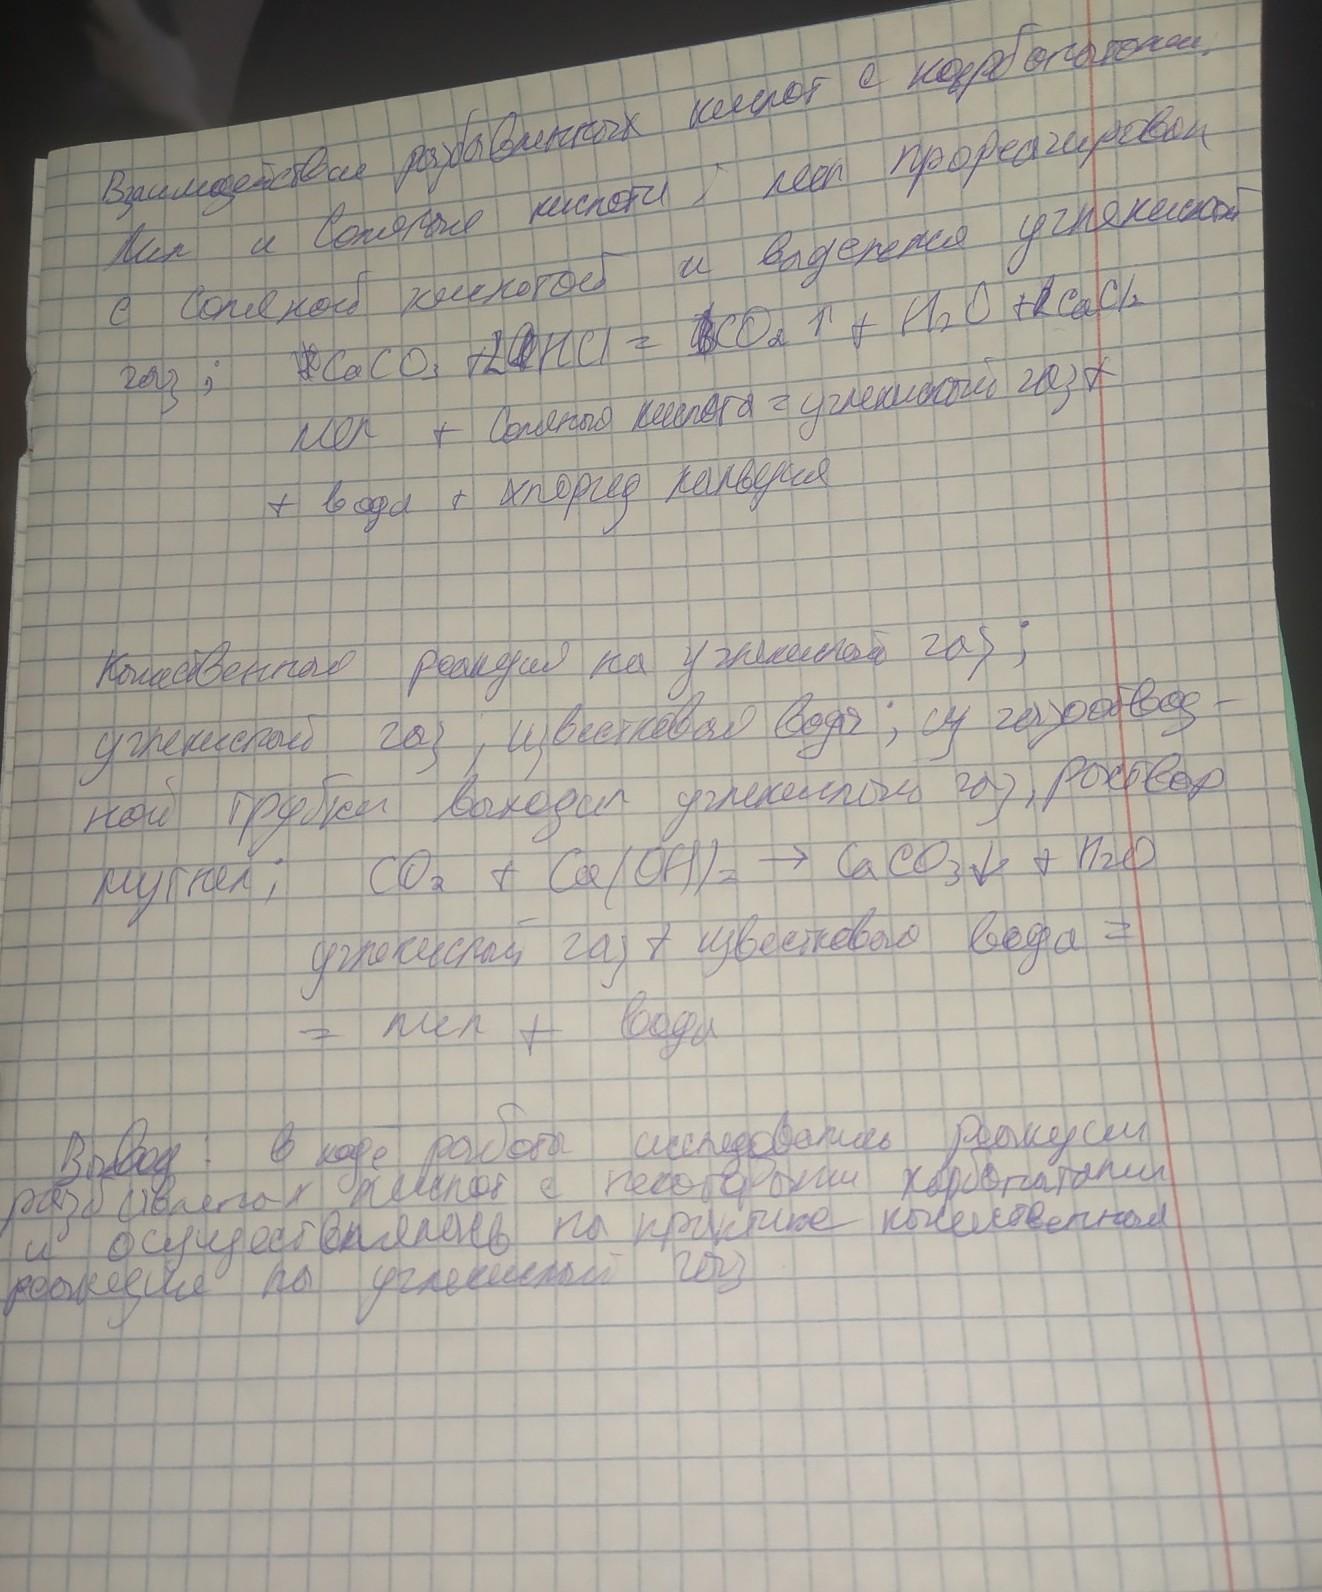 Взаимодействие разбавленных кислот с карбонатами.
Мел и Соляная кислота; мел прореагировал
с Соляной кислотой и выделелся углекислый
газ; CaCO3 + 2HCl = CO2 ↑ + H2O + CaCl2
мел + Соляная кислота = углекислый газ +
+ вода + хлорид кальция
Качественная реакция на углекислый газ;
углекислый газ, известковая вода; из газоотвод-
ной трубки выходил углекислый газ, раствор
мутнел; CO2 + Ca(OH)2 → CaCO3↓ + H2O
углекислый газ + известковая вода =
= мел + вода
Вывод: в ходе работы исследовались реакции
разбавленных кислот с некоторыми карбонатами
и осуществлялась на практике качественная
реакция на углекислый газ